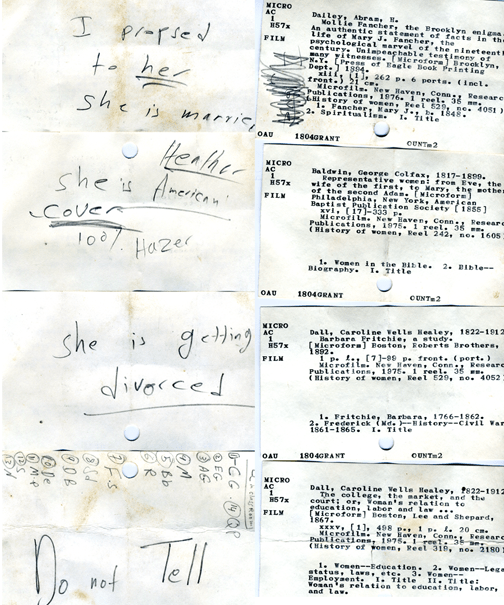 I propsed
to her
she is married
Heather
she is American
cover
100% Hazer
she is getting
divorced
Do not Tell
MICRO
AC
1
H57x
FILM
Dailey, Abram, H.
Mollie Fancher, the Brooklyn enigma.
An authentic statement of facts in the
life of Mary J. Fancher, the
psychological marvel of the nineteenth
century. Unimpeachable testimony of
many witnesses. [Microform] Brooklyn,
N.Y. [Press of Eagle Book Printing
Dept.] 1894.
xiii, [1], 262 p. 6 ports. (incl.
front.) 21 cm.
Microfilm. New Haven, Conn., Research
Publications, 1976. 1 reel. 35 mm.
(History of women, Reel 529, no. 4051)
1. Fancher, Mary J., b. 1848.
2. Spiritualism. I. Title
OAU 1804GRANT OUNTm2
MICRO
AC
1
H57x
FILM
Baldwin, George Colfax, 1817-1899.
Representative women: from Eve, the
wife of the first, to Mary, the mother
of the second Adam. [Microform]
Philadelphia, New York, American
Baptist Publication Society [1855]
xvi, [17]-333 p.
Microfilm. New Haven, Conn., Research
Publications, 1975. 1 reel. 35 mm.
(History of women, Reel 242, no. 1605)
1. Women in the Bible. 2. Bible--
Biography. I. Title
OAU 1804GRANT OUNTm2
MICRO
AC
1
H57x
FILM
Dall, Caroline Wells Healey, 1822-1912.
Barbara Fritchie, a study.
[Microform] Boston, Roberts Brothers,
1892.
1 p. l., [7]-99 p. front. (port.)
Microfilm. New Haven, Conn., Research
Publications, 1976. 1 reel. 35 mm.
(History of women, Reel 529, no. 4052)
1. Fritchie, Barbara, 1766-1862.
2. Frederick (Md.)--History--Civil War,
1861-1865. I. Title
OAU 1804GRANT OUNTm2
MICRO
AC
1
H57x
FILM
Dall, Caroline Wells Healey, 1822-1912.
The college, the market, and the
court; or, Woman's relation to
education, labor and law ...
[Microform] Boston, Lee and Shepard,
1867.
xxxv, [1], 498 p., 1 p. l. 20 cm.
Microfilm. New Haven, Conn., Research
Publications, 1975. 1 reel. 35 mm.
(History of women, Reel 319, no. 2180)
1. Women--Education. 2. Women--Legal
status, laws, etc. 3. Women--
Employment. I. Title II. Title:
Woman's relation to education, labor,
and law.